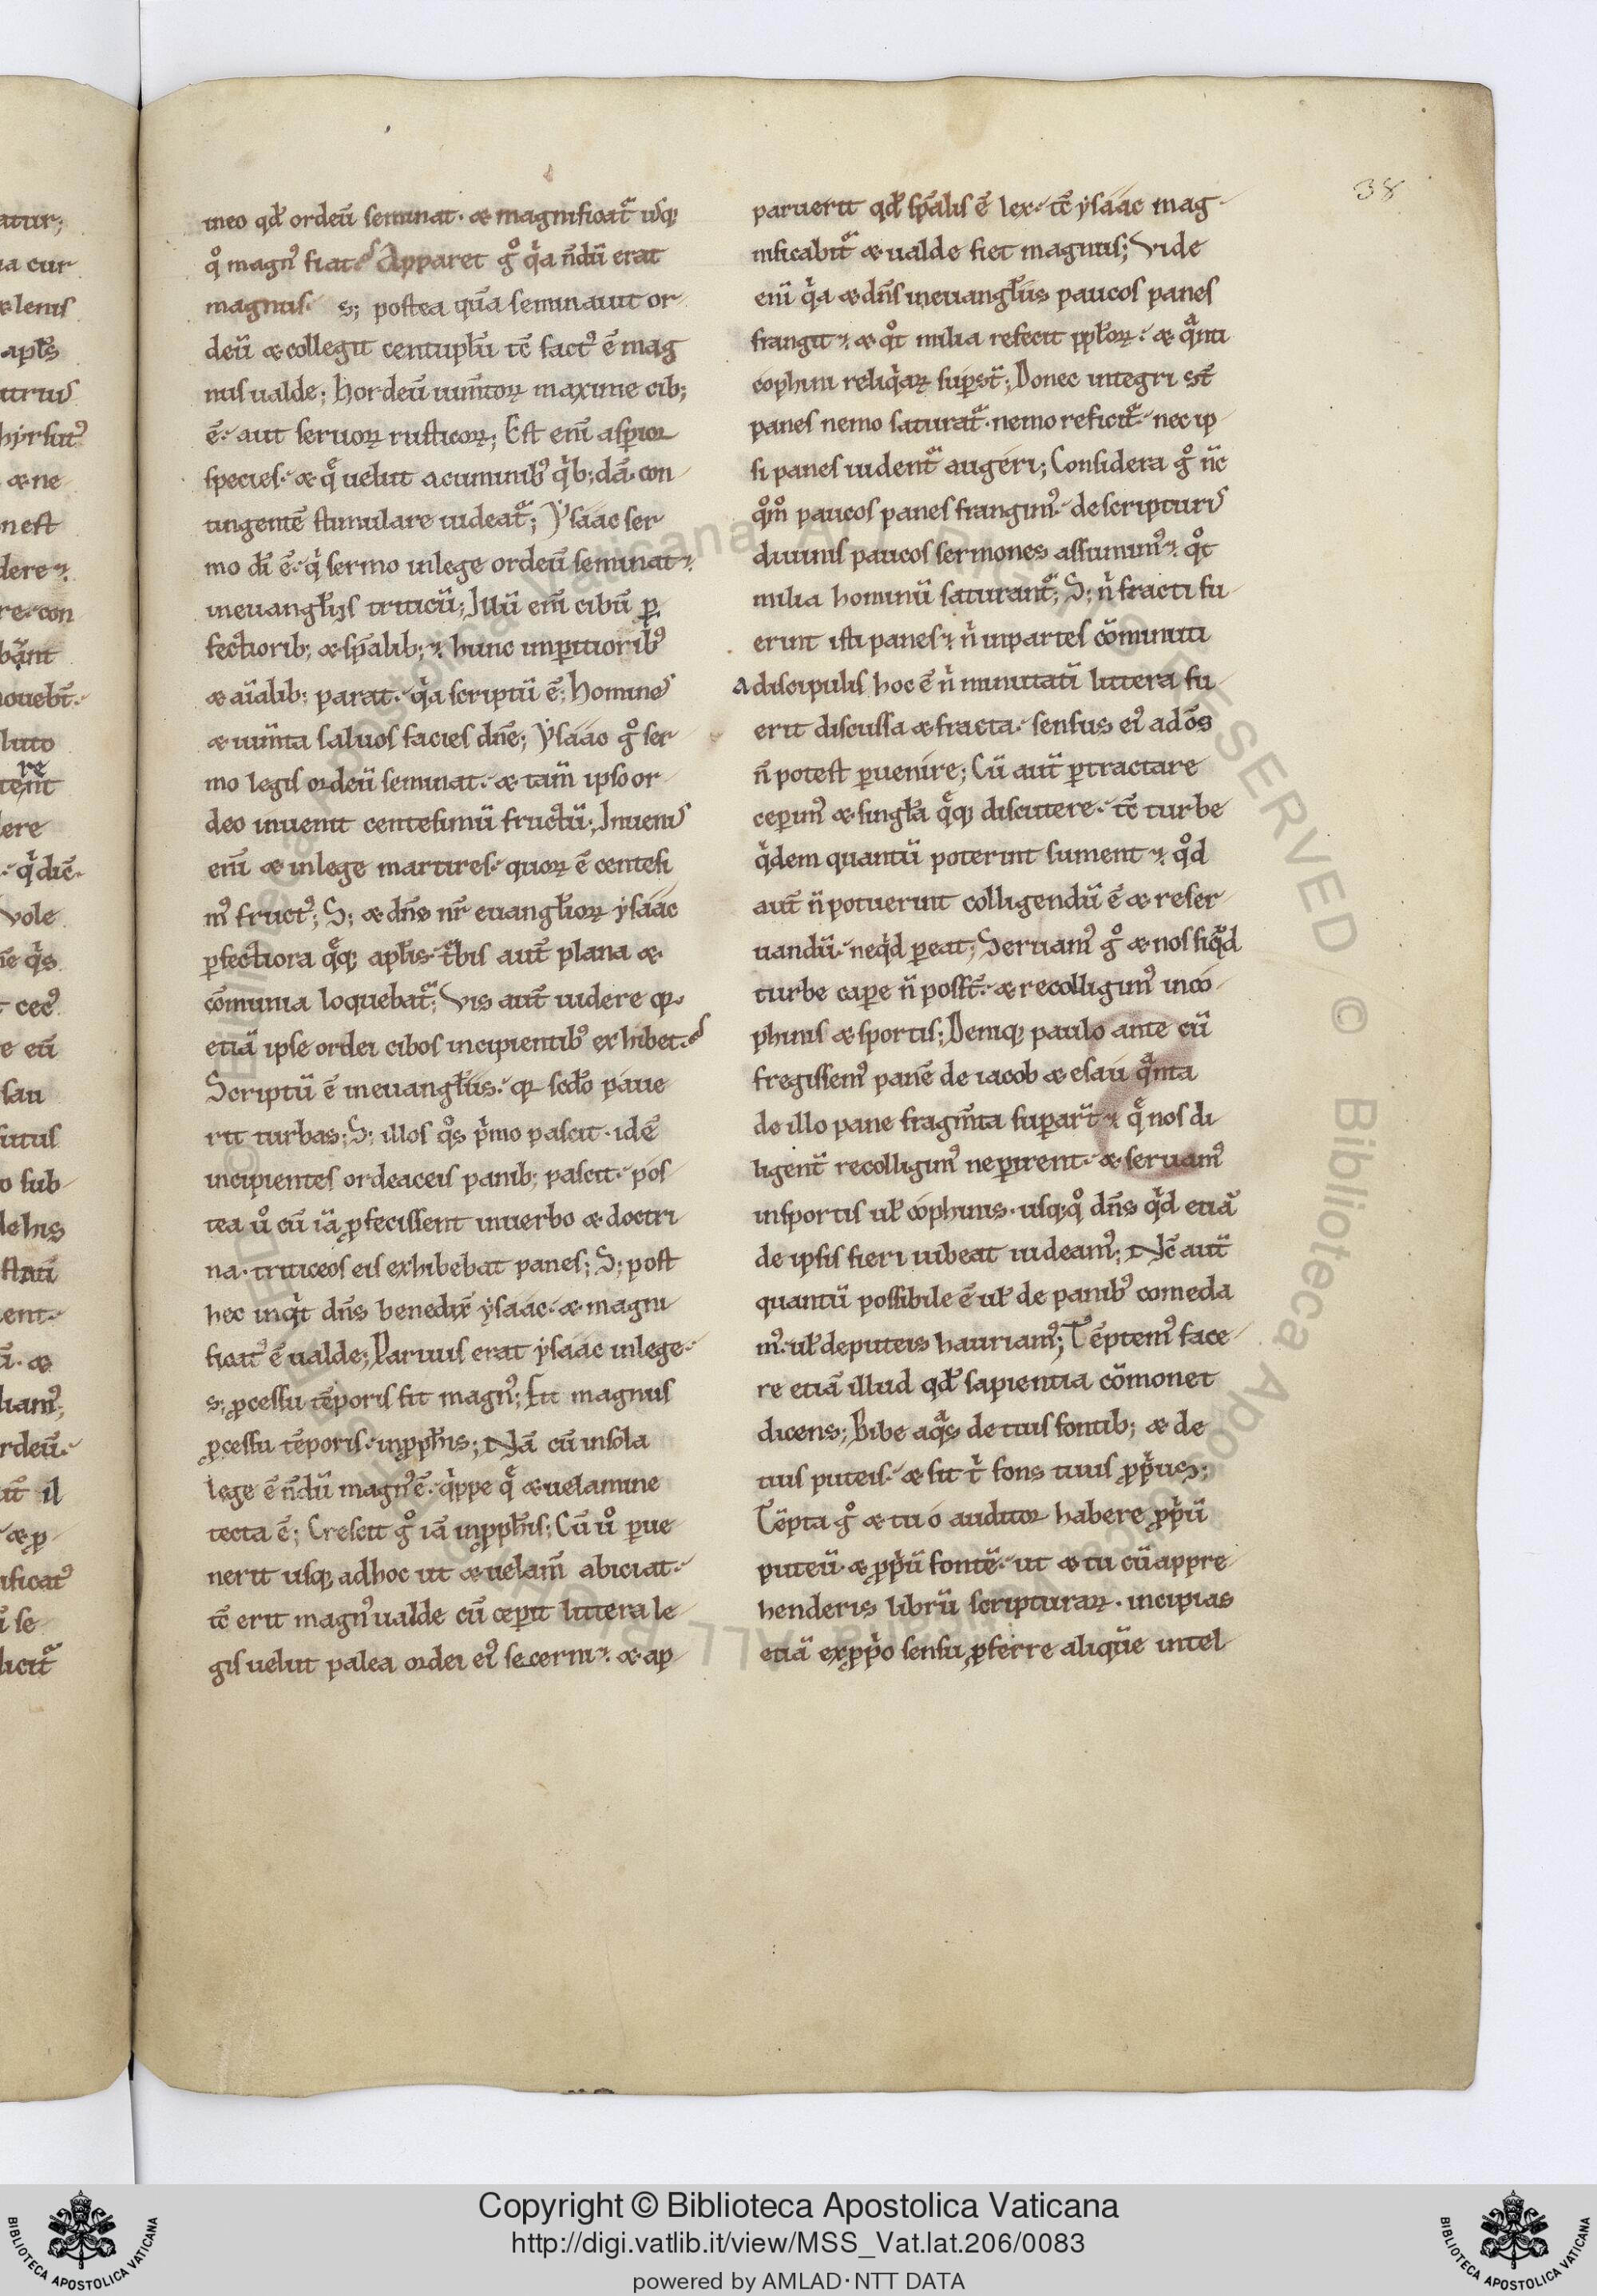 38
ineo qđ ordeū seminat· & magnificat᷑ usq;
qͦ magn᷒ fiat? Apparet gͦ qͥa n̄dū erat
magnus· s; postea quā seminauit or
deū & collegit centuplū tc̄ fact᷒ ē mag
nus ualde; hordeū ium̄toꝝ maxime cib;
ē· aut seruoꝝ rusticoꝝ; Est eni̅ asꝑior
species· & qͤ uelut acuminib᷒ qͥb;dā· con
tingentē stimulare uideat᷑; Ẏsáác ser
mo dī ē· qͥ sermo inlege ordeū seminat·
ineuangłiis triticū; Illū eni̅ cibū ꝑ
fectiorib; & sp̄alib; hunc imꝑitiorib᷒
& aīalib; parat· qͥa scriptū ē; Homines
& ium̄ta saluos facies dn̄e; Ẏsáác gͦ ser
mo legis ordeū seminat· & tam̄ ipso or
deo inuenit centesimū fructū; Inuenis
eni̅ & inlege martires· quoꝝ ē centesi
m᷒ fruct᷒; S; & dn̄s nr̄ euangłioꝝ ẏsáác
ꝑfectiora qͤq; apłis· t᷑bis aut̄ plana &
cōmunia loquebat᷑; Vis aut̄ uidere qꝛ
etiā ipse ordei cibos incipientib᷒ exhibet?
Scriptū ē ineuangłiis· qꝛ scđo paue
rit turbas; S; illos qͦs pͥmo pascit· idē
incipientes ordeaceis panib; pascit· pos
tea uͦ cū iā ꝓfecissent inuerbo & doctri
na· triticeos eis exhibebat panes; S; post
hec inqͥt dn̄s benedix̄ ẏsáác· & magni
ficat᷒ ē ualde; Paruus erat ẏsáác inlege·
s; ꝓcessu tēporis fit magn᷒; Fit magnus
ꝓcessu tēporis· inꝓph̄is; Nā cū insola
lege ē n̄dū magn᷒ ē· qͥppe qͤ & uelamine
tecta ē; Crescit gͦ iā inꝓph̄is; Cū uͦ ꝑue
nerit usq; adhoc ut & uelam̄ abiciat·
tc̄ erit magn᷒ ualde cū ceꝑit littera le
gis uelut palea ordei ei᷒ secerni· & ap
paruerit qđ sp̄alis ē lex· tc̄ ẏsáác mag
nificabit᷑ & ualde fiet magnus; Vide
eni̅ qͥa & dn̄s ineuangłiis paucos panes
frangit· & qͦt milia reficit ppłoꝝ· & qͣnti
cophini reliqͥaꝝ suꝑst̄; Donec integri st̄
panes nemo saturat᷑· nemo reficit᷑· nec ip
si panes uident᷑ augéri; Considera gͦ n̄c
qͦmͦ paucos panes frangim᷒· de scripturis
diuinis paucos sermones assumim᷒· qͦt
milia hominū saturant᷑; S; nͥ fracti fu
erint isti panes· nͥ inpartes cōminuti
a discipulis hoc ē nͥ minutatī littera fu
erit discussa & fracta· sensus ei᷒ ad ōs
n̄ potest ꝑuenire; Cū aut̄ ꝑtractare
ceꝑim᷒ & singła qͤq; discutere· tc̄ turbe
qͥdem quantū poterint sument· qͦd
aut̄ n̄ potuerint colligendū ē & reser
uandū· neqͥd ꝑeat; Seruam᷒ gͦ & nos siqͦd
turbe caꝑe n̄ poss̄t· & recolligim᷒ incó
phinis & sportis; Deniq; paulo ante cū
fregissem᷒ panē de iacob & esaú qͣnta
de illo pane fragm̄ta suꝑar̄t· qͤ nos di
ligent̄ recolligim᷒ neꝑirent· & seruam᷒
insportis uł cóphinis· usq;qͦ dn̄s qͥd etiā
de ipsis fieri iubeat uideam᷒; Nc̄ aut̄
quantū possibile ē uł de panib᷒ comeda
m᷒· uł deputeis hauriam᷒; Tēptem᷒ face
re etiā illud qđ sapientia cōmonet
dicens; Bibe aqͣs de tuis fontib; & de
tuis puteis· & sit tͥ fons tuus ꝓpͥus;
Tēpta gͦ & tu ó auditor habere ꝓpͥū
puteū· & ꝓpͥū fontē· ut & tu cū appre
henderis librū scripturaꝝ· incipias
etiā exꝓpͥo sensu ꝓferre aliquē intel
Copyright © Biblioteca Apostolica Vaticana
http://digi.vatlib.it/view/MSS_Vat.lat.206/0083
powered by AMLAD·NTT DATA